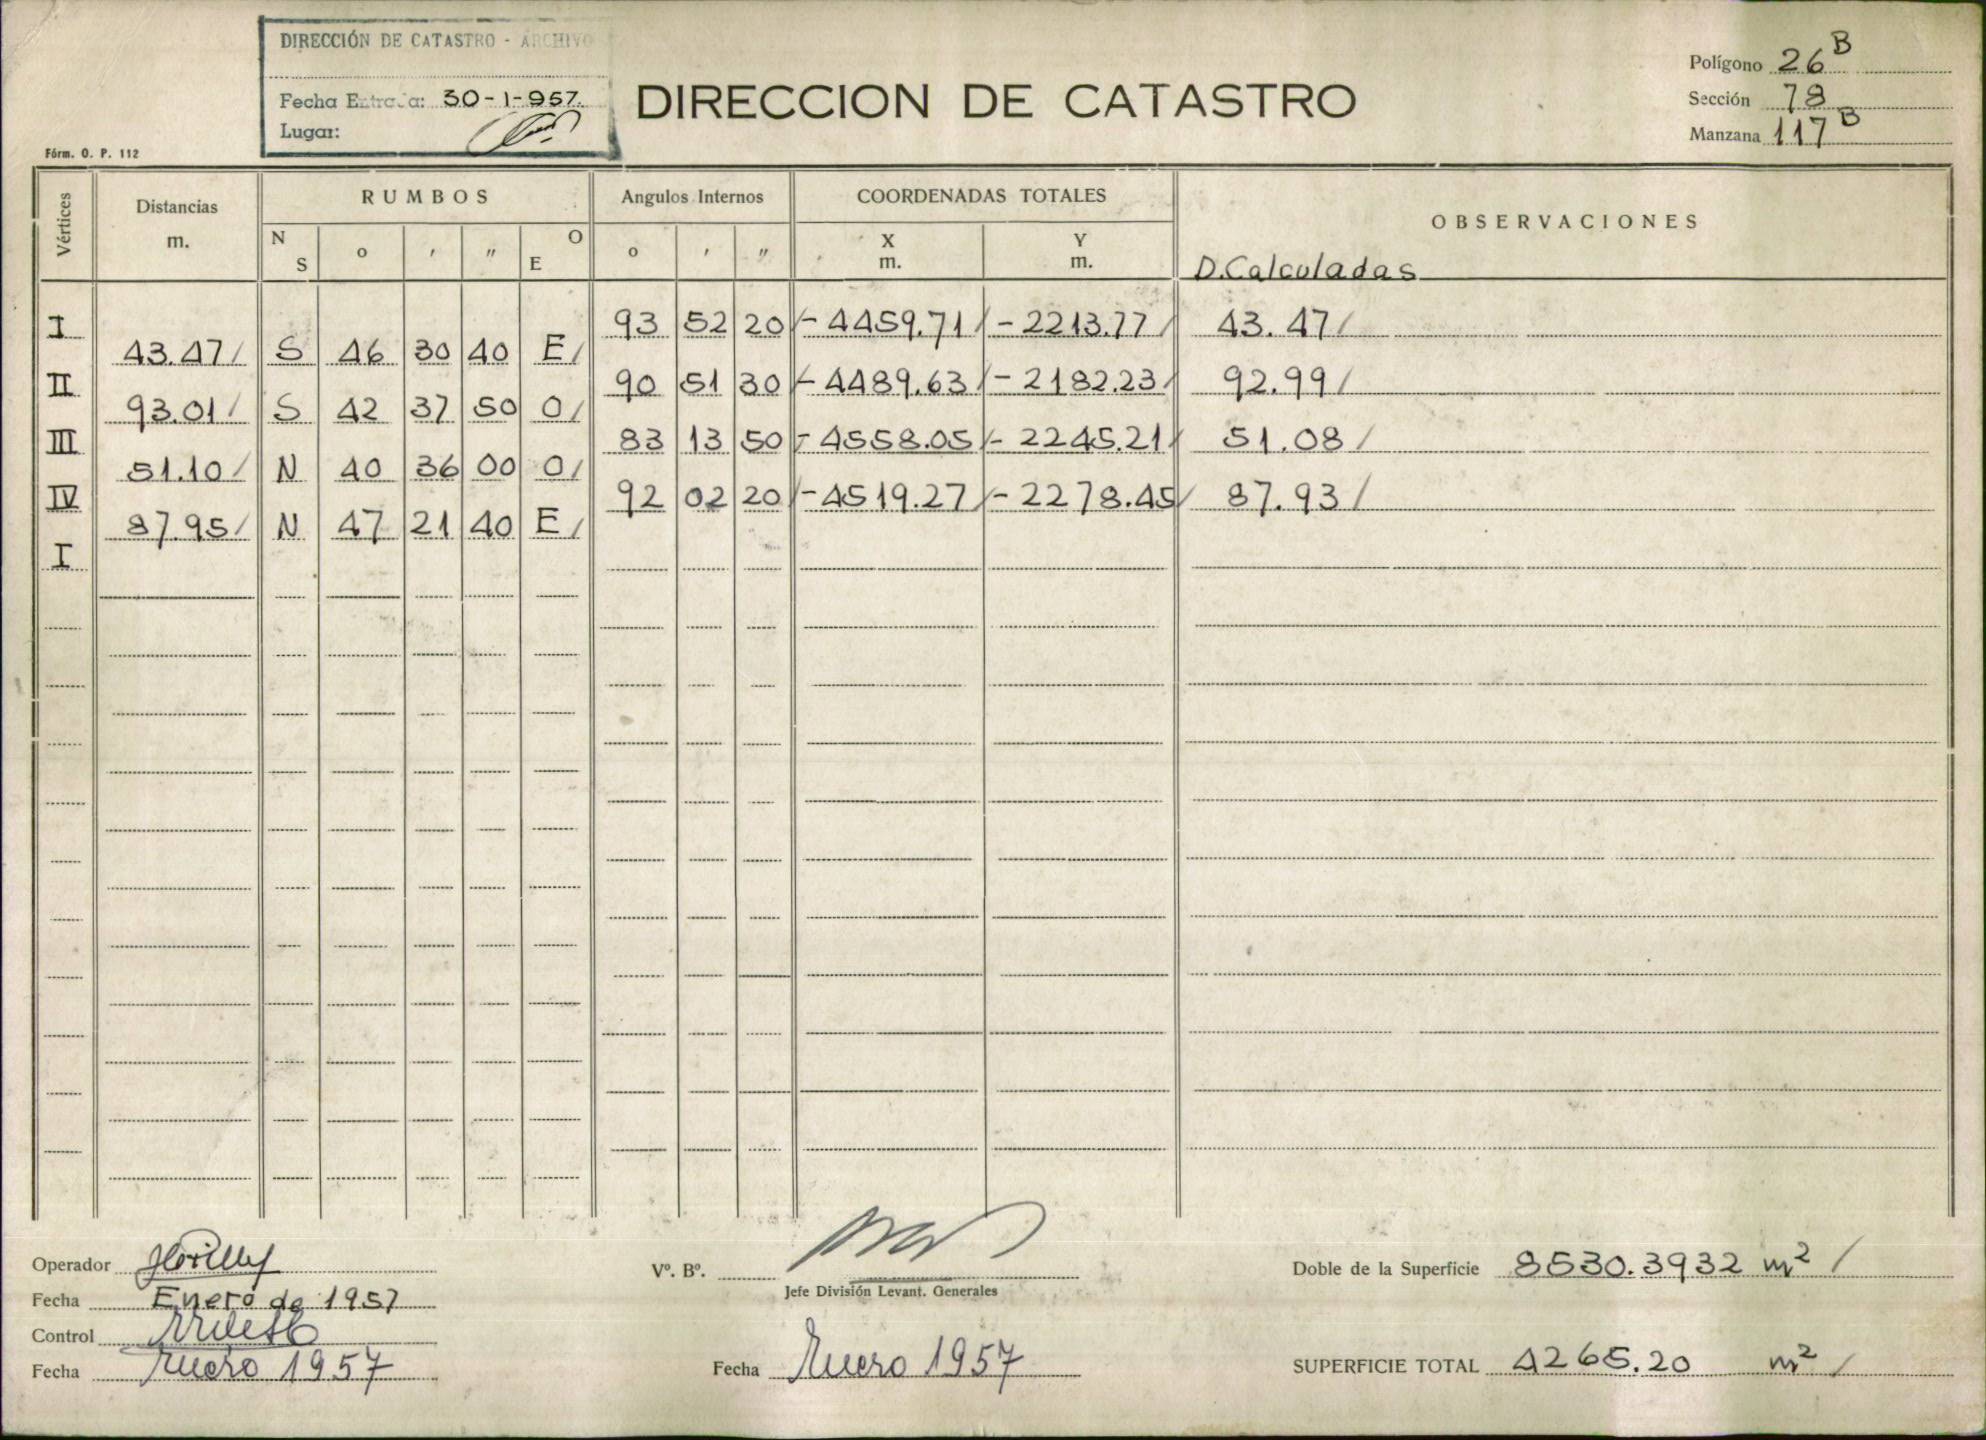 DIRECCIÓN DE CATASTRO - ARCHIVO
Fecha Entrada: 30-1-957.
Lugar:
Fórm. O. P. 112
DIRECCION DE CATASTRO
Polígono 26 B
Sección 78
Manzana 117 B
Vértices
Distancias m.
RUMBOS
N S o ' " O E
Angulos Internos
o ' "
COORDENADAS TOTALES
X m. Y m.
OBSERVACIONES
D. Calculadas
I 93 52 20 - 4459.71 - 2213.77 43.47
43.47 S 46 30 40 E
II 90 51 30 - 4489.63 - 2182.23 92.99
93.01 S 42 37 50 O
III 83 13 50 - 4558.05 - 2245.21 51.08
51.10 N 40 36 00 O
IV 92 02 20 - 4519.27 - 2278.45 87.93
87.95 N 47 21 40 E
I
Operador
Fecha Enero de 1957
Control
Fecha Enero 1957
Vº. Bº.
Jefe División Levant. Generales
Fecha Enero 1957
Doble de la Superficie 8530.3932 m²
SUPERFICIE TOTAL 4265.20 m²